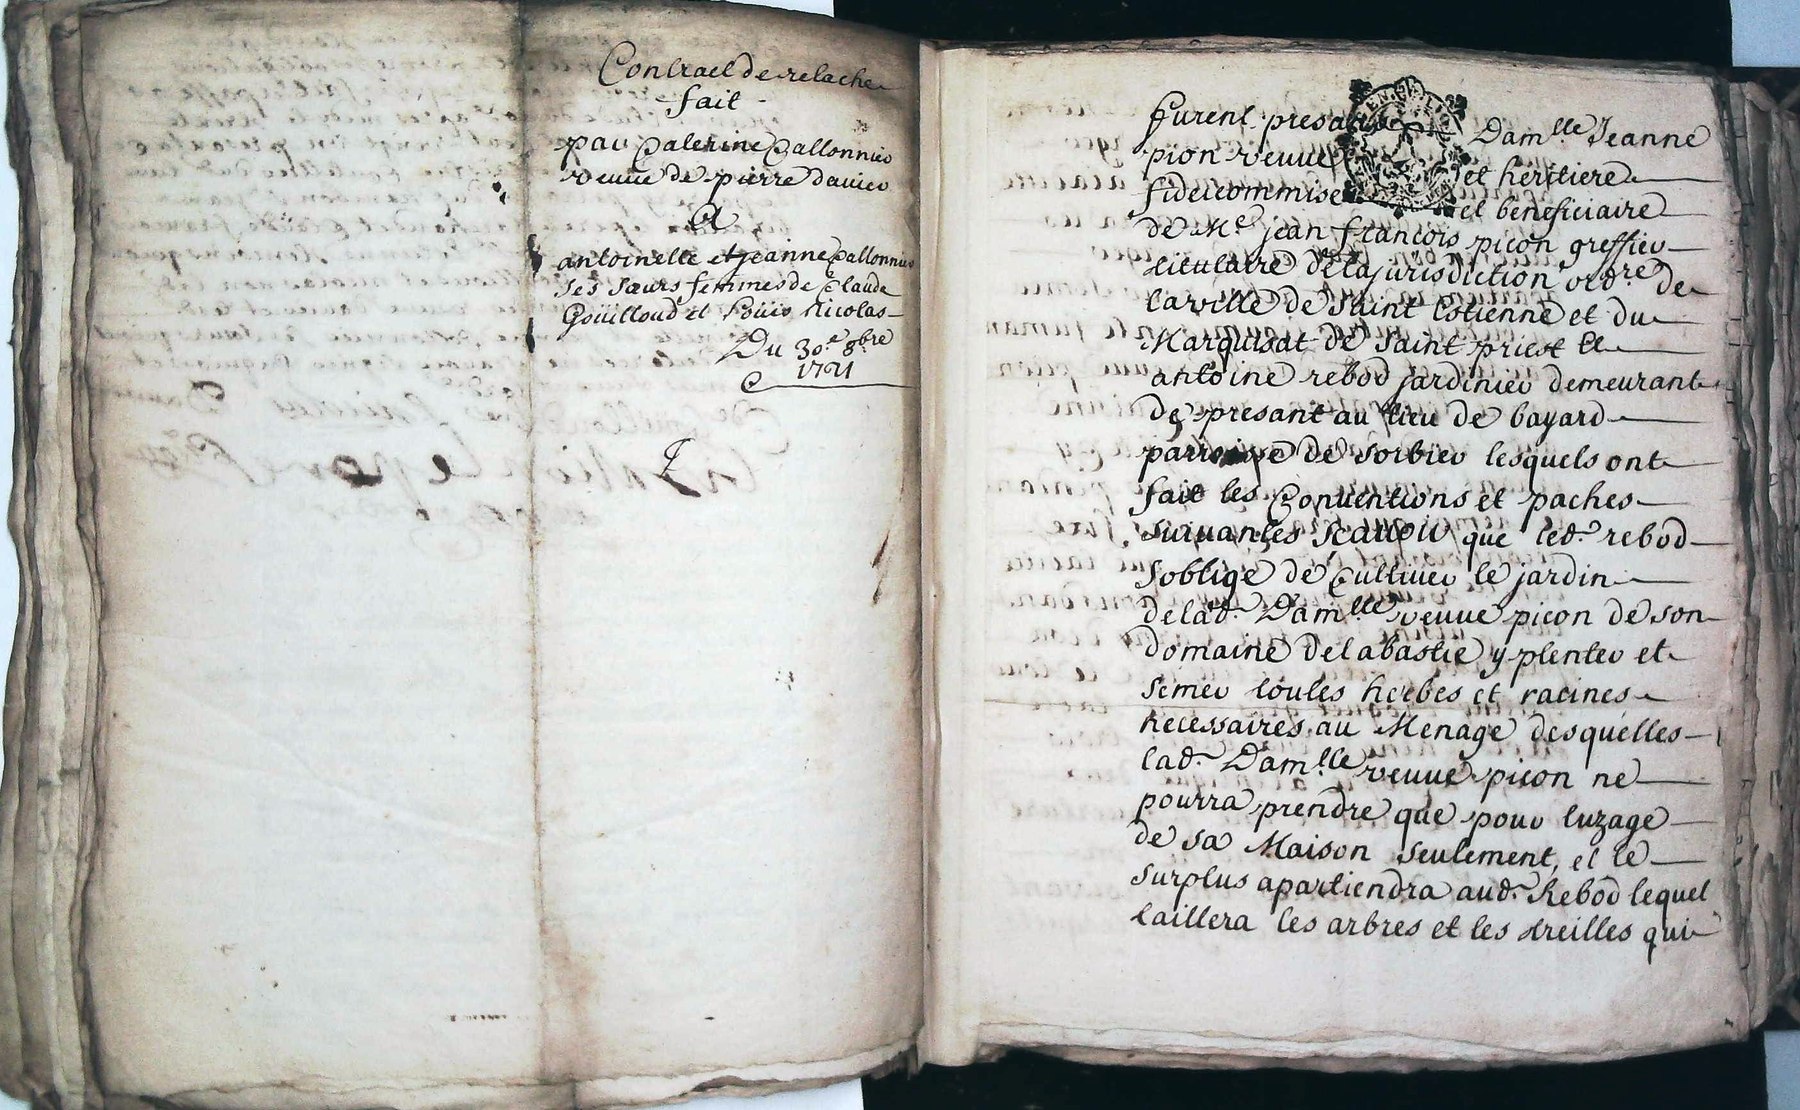 Contract de relache
fait
par Caterine Callonnier
veuve de pierre davier
A
antoinette et jeanne Callonnier
ses sœurs femmes de Claude
Gouilloud et Louis Nicolas
Du 30e 8bre
1721
furent presants Damlle Jeanne
pion veuve et heritiere
fideicommise et beneficiaire
de Me jean françois picon greffier
titulaire de la jurisdiction ordre de
la ville de Saint Estienne et du
Marquisat de Saint priest et
antoine rebod jardinier demeurant
de presant au lieu de bayard
parroisse de sorbier lesquels ont
fait les Conventions et paches
suivantes scavoir que led. rebod
soblige de Cultiver le jardin
de lad. Damlle veuve picon de son
domaine de la bastie y plenter et
semer toutes herbes et racines
necessaires au Menage desquelles
lad. Damlle veuve picon ne
pourra prendre que pour luzage
de sa Maison seulement, et le
surplus apartiendra aud. Rebod lequel
taillera les arbres et les treilles qui